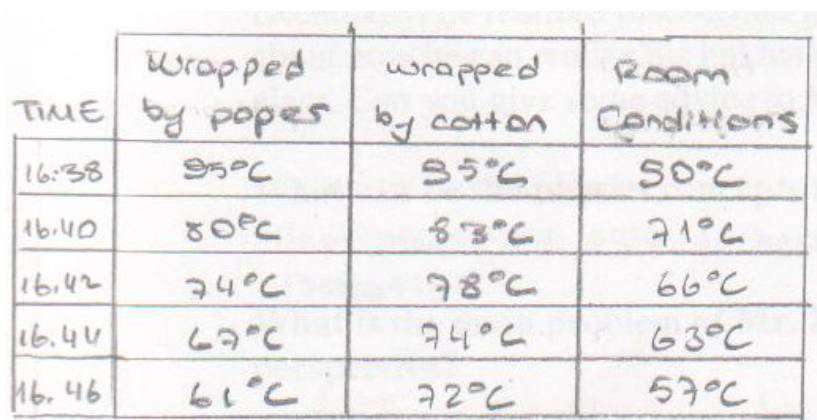 Wrapped wrapped Room
TIME by paper by cotton Conditions
16:38 95°C 95°C 90°C
16.40 80°C 83°C 71°C
16.42 74°C 78°C 66°C
16.44 67°C 74°C 63°C
16.46 61°C 72°C 57°C